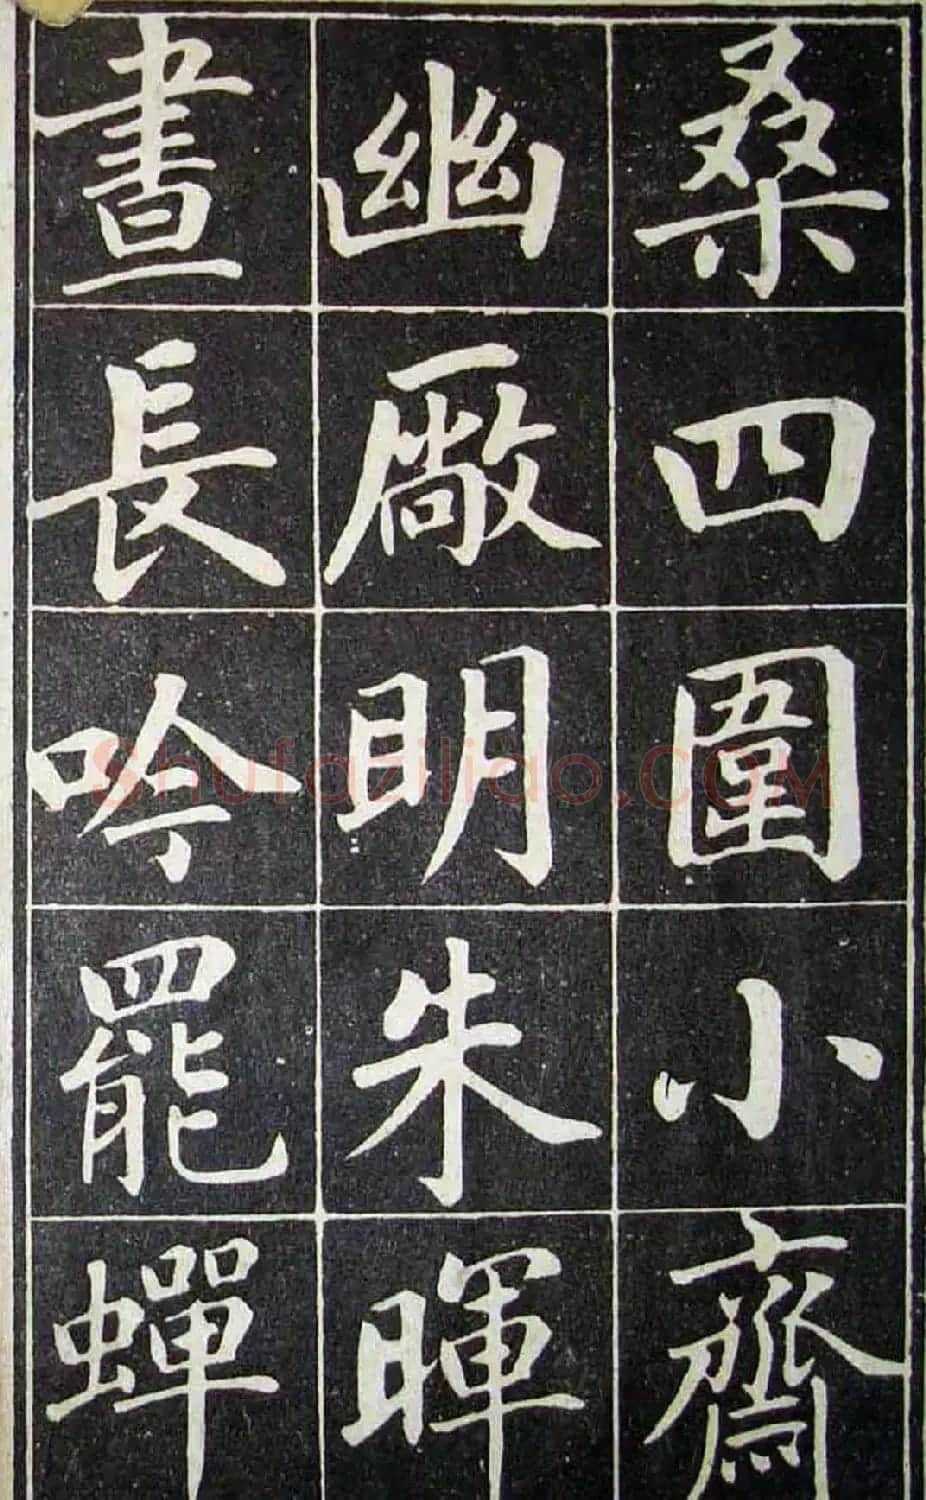 桑四圍小齋
幽厰明朱暉
晝長吟罷蟬
shufaziliao.com